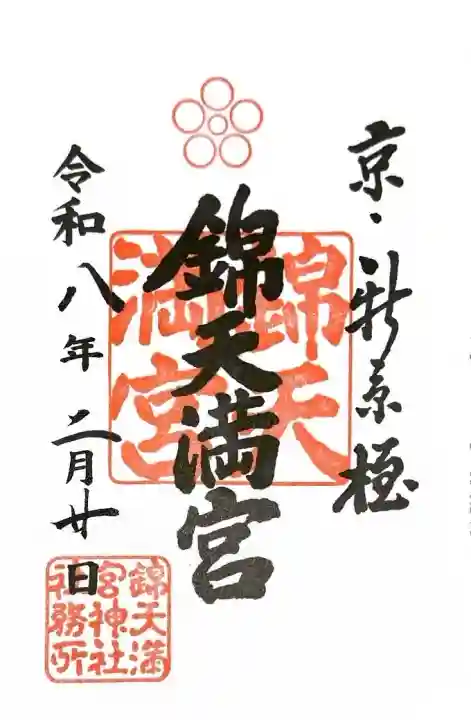 京・新京極
錦天満宮
令和八年二月廿日
錦天
満宮
錦天満
宮神社
神務所